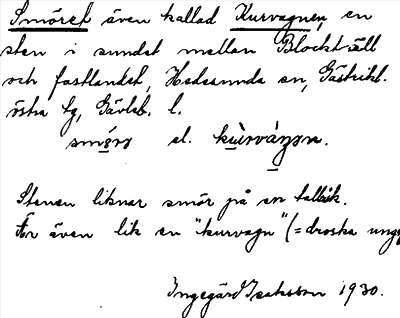 Smöret även kallad Kurvagnen, en
sten i sundet mellan Blockthäll
och fastlandet, Hedesunda sn, Gästrikl.
östra tg, Gävleb. l.
smö́rə el. kùrvàŋən.
Stenen liknar smör på en tallrik.
Är även lik en "kurvagn" (= droska ung
Ingegärd Isaksson 1930.